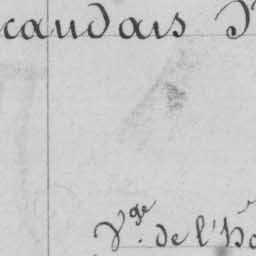 caudais
Vge. de l'Ho